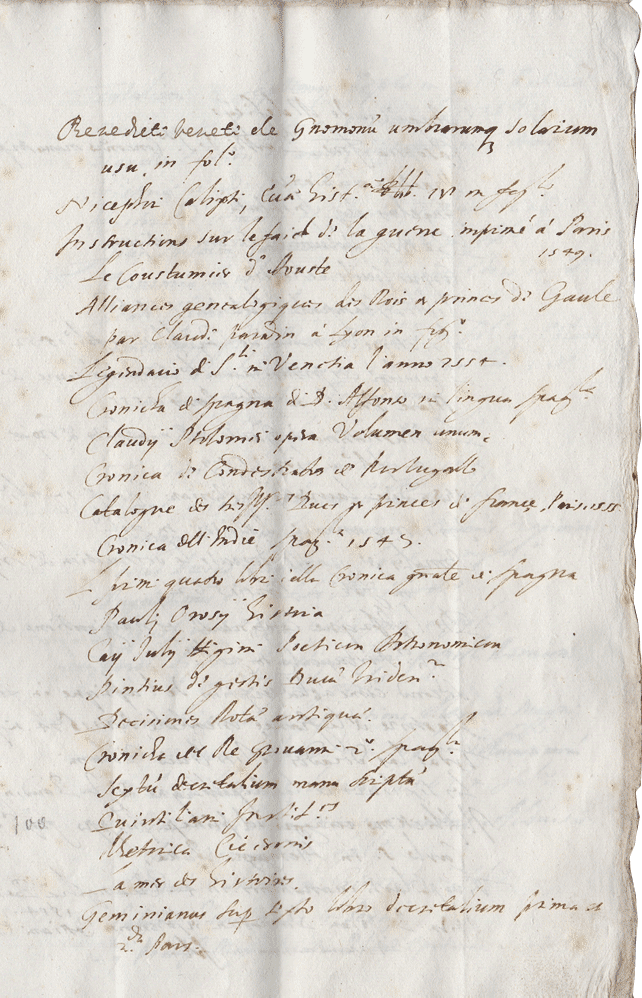 Benedicti Veneti de Gnomonū umbrarumq solarium
usu, in fol.º
Nicephi Calipti, Ecca hist.ª in fog.lo
Instructions sur le faict de la guerre inprimé á Paris
1549.
Le Coustumier d
Alliances genealogiques des Rois & princes de Gaule
par Claude paradin á Lyon in fog.º
Legendario di S.ti in Venetia l'anno 1554.
Cronicha di spagna di D. Alfonso in lingua spag.la
Claudij Ptolomei opera Volumen unum.
Cronica di Condestabro de Portugallo
Catalogue des Ducs & princes de france, Paris. 1555
Cronica dell Indie spag.ª 1547.
Li primi quatro libri della Cronica gnale di spagna
Pauli Orosij historia
Caij Julij Higini Poeticon Astronomicon
Pintius de gestis Ducū triden.
Decisiones Rotæ antiquæ.
Cronicha del Re Giovanni 2.º spag.la
Sextū decretalium manu scriptū
100
Quintiliani Instit.es
Rhetorica Ciceronis
La mer des histoires
Geminianus sup sexto libro decretalium prima et
2.da Pars.